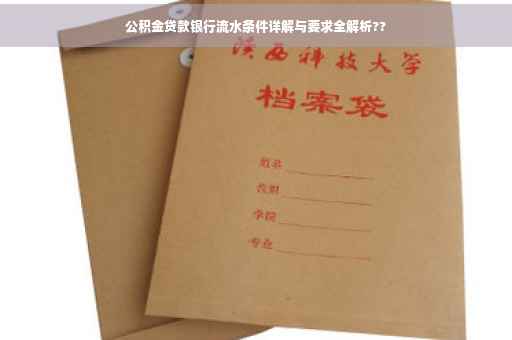 公积金贷款银行流水条件详解与要求全解析??
陕西科技大学
档案袋
姓名
学院
专业